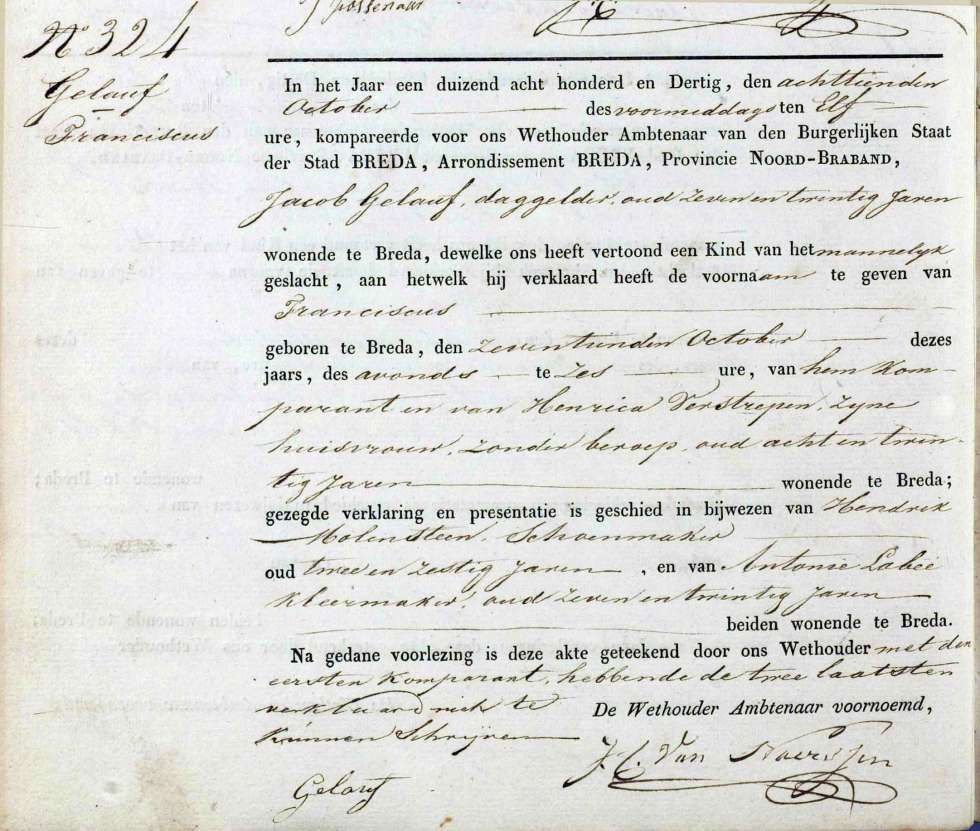 Nº 324
Gelauf
Franciscus
In het Jaar een duizend acht honderd en Dertig, den achttienden
October des voormiddags ten Elf
ure, kompareerde voor ons Wethouder Ambtenaar van den Burgerlijken Staat
der Stad BREDA, Arrondissement BREDA, Provincie NOORD-BRABAND,
Jacob Gelauf, daggelder, oud zeven en twintig Jaren
wonende te Breda, dewelke ons heeft vertoond een Kind van het mannelyk
geslacht, aan hetwelk hij verklaard heeft de voornaam te geven van
Franciscus
geboren te Breda, den zeventienden October dezes
jaars, des avonds te Zes ure, van hem Kom-
parant en van Henrica Verstrepen, zyne
huisvrouw, zonder beroep, oud acht en twin-
tig Jaren wonende te Breda;
gezegde verklaring en presentatie is geschied in bijwezen van Hendrik
Molensteen, Schoenmaker
oud twee en zestig Jaren, en van Antonie Labeé
Kleermaker, oud zeven en twintig Jaren
beiden wonende te Breda.
Na gedane voorlezing is deze akte geteekend door ons Wethouder met den
eersten Komparant, hebbende de twee laatsten
verklaard niet te
Kunnen Schryven
De Wethouder Ambtenaar voornoemd,
Gelauf
J. C. Van